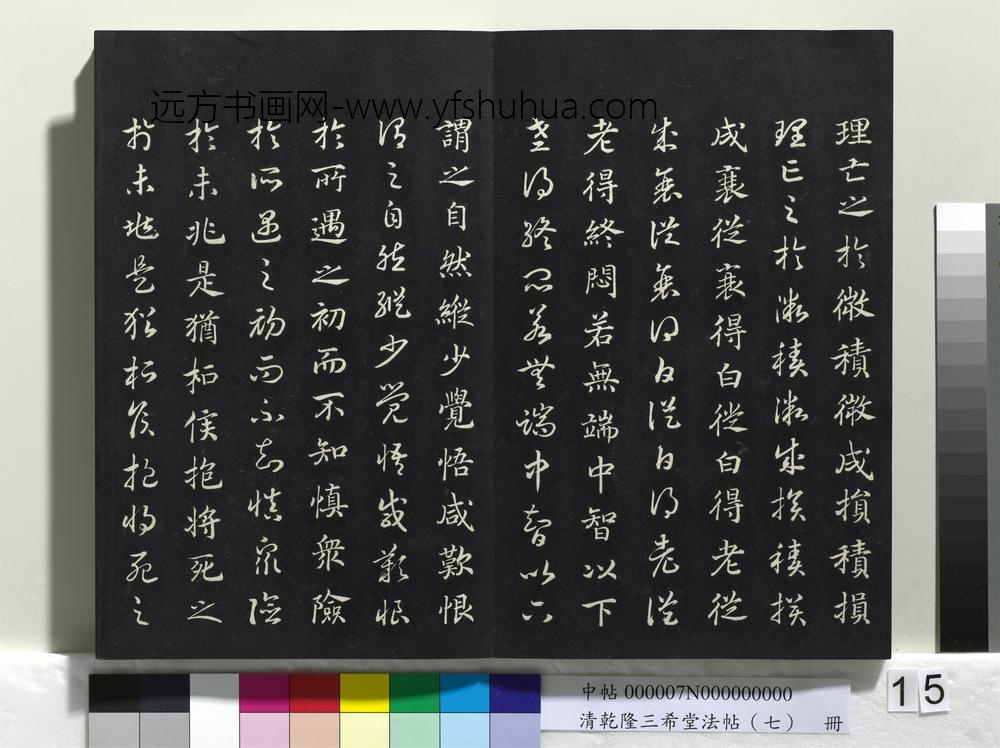 远方书画网-www.yfshuhua.com
理亡之於微積微成損積損
理亡之於微積微成損積損
成衰從衰得白從白得老從
成衰從衰得白從白得老從
老得終悶若無端中智以下
老得終悶若無端中智以下
謂之自然縱少覺悟咸歎恨
謂之自然縱少覺悟咸歎恨
於所遇之初而不知慎衆險
於所遇之初而不知慎衆險
於未兆是猶桓侯抱將死之
於未兆是猶桓侯抱將死之
中帖 000007N000000000
清乾隆三希堂法帖（七） 冊
15